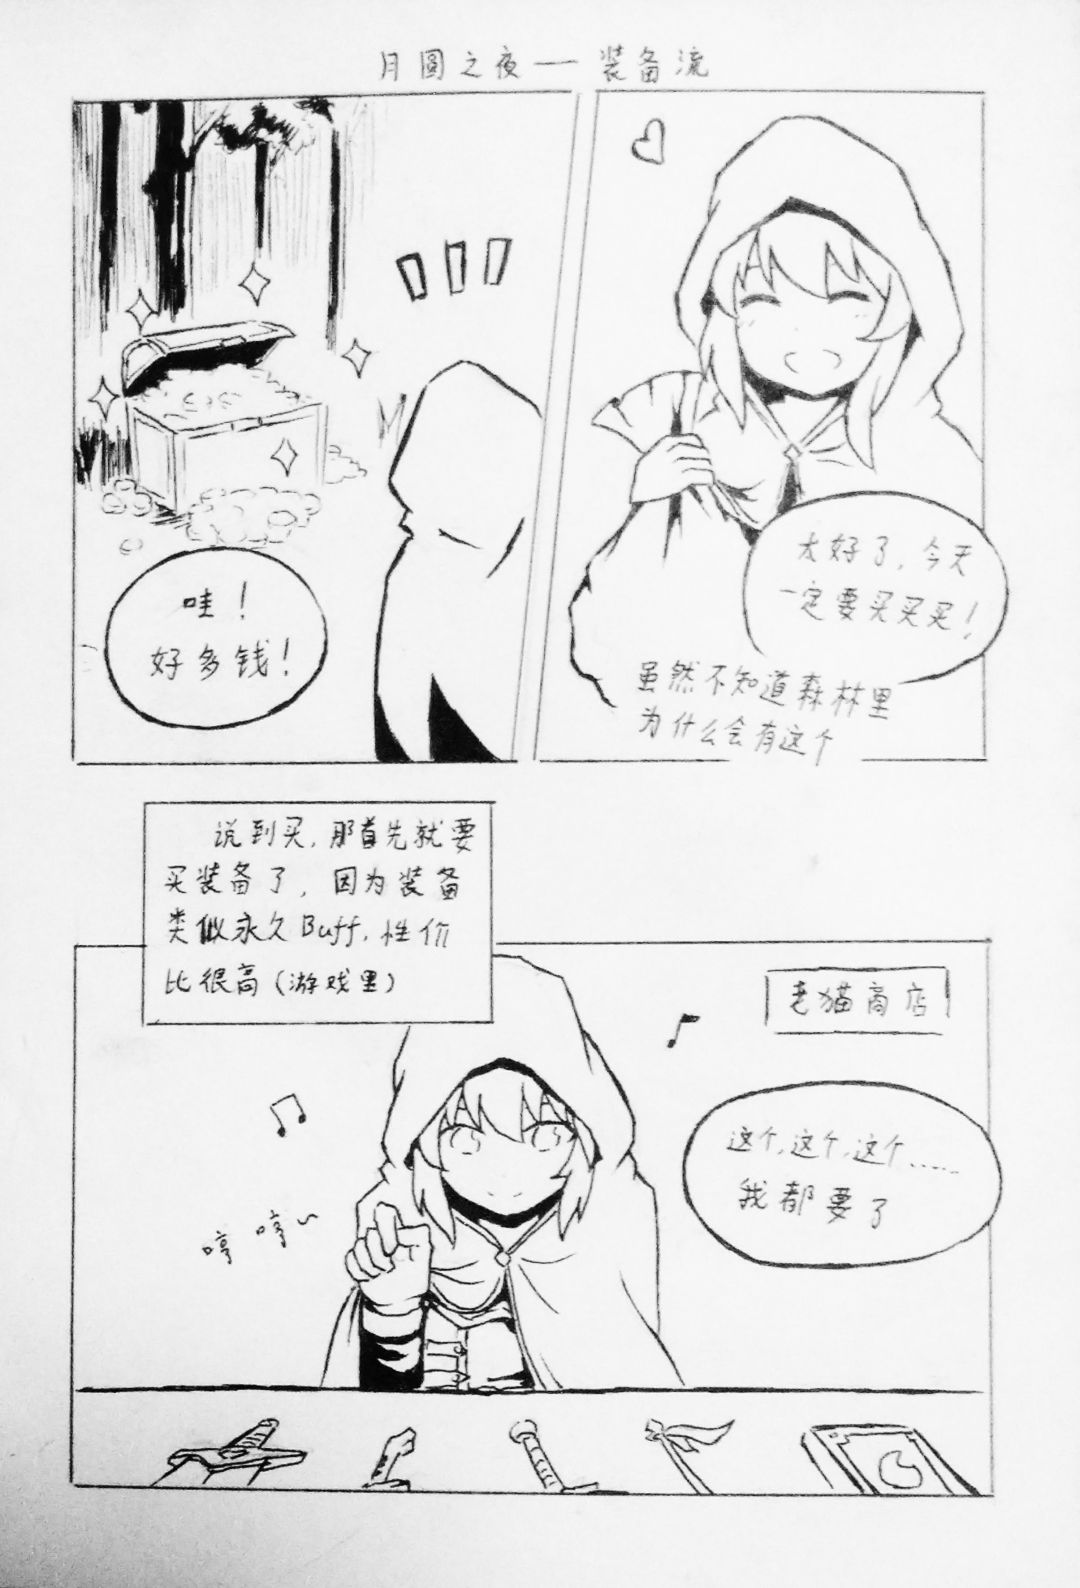 月圆之夜——装备流
哇！
好多钱！
太好了，今天
一定要买买买！
虽然不知道森林里
为什么会有这个
说到买，那首先就要
买装备了，因为装备
类似永久Buff，性价
比很高（游戏里）
老猫商店
这个，这个，这个……
我都要了
哼哼~